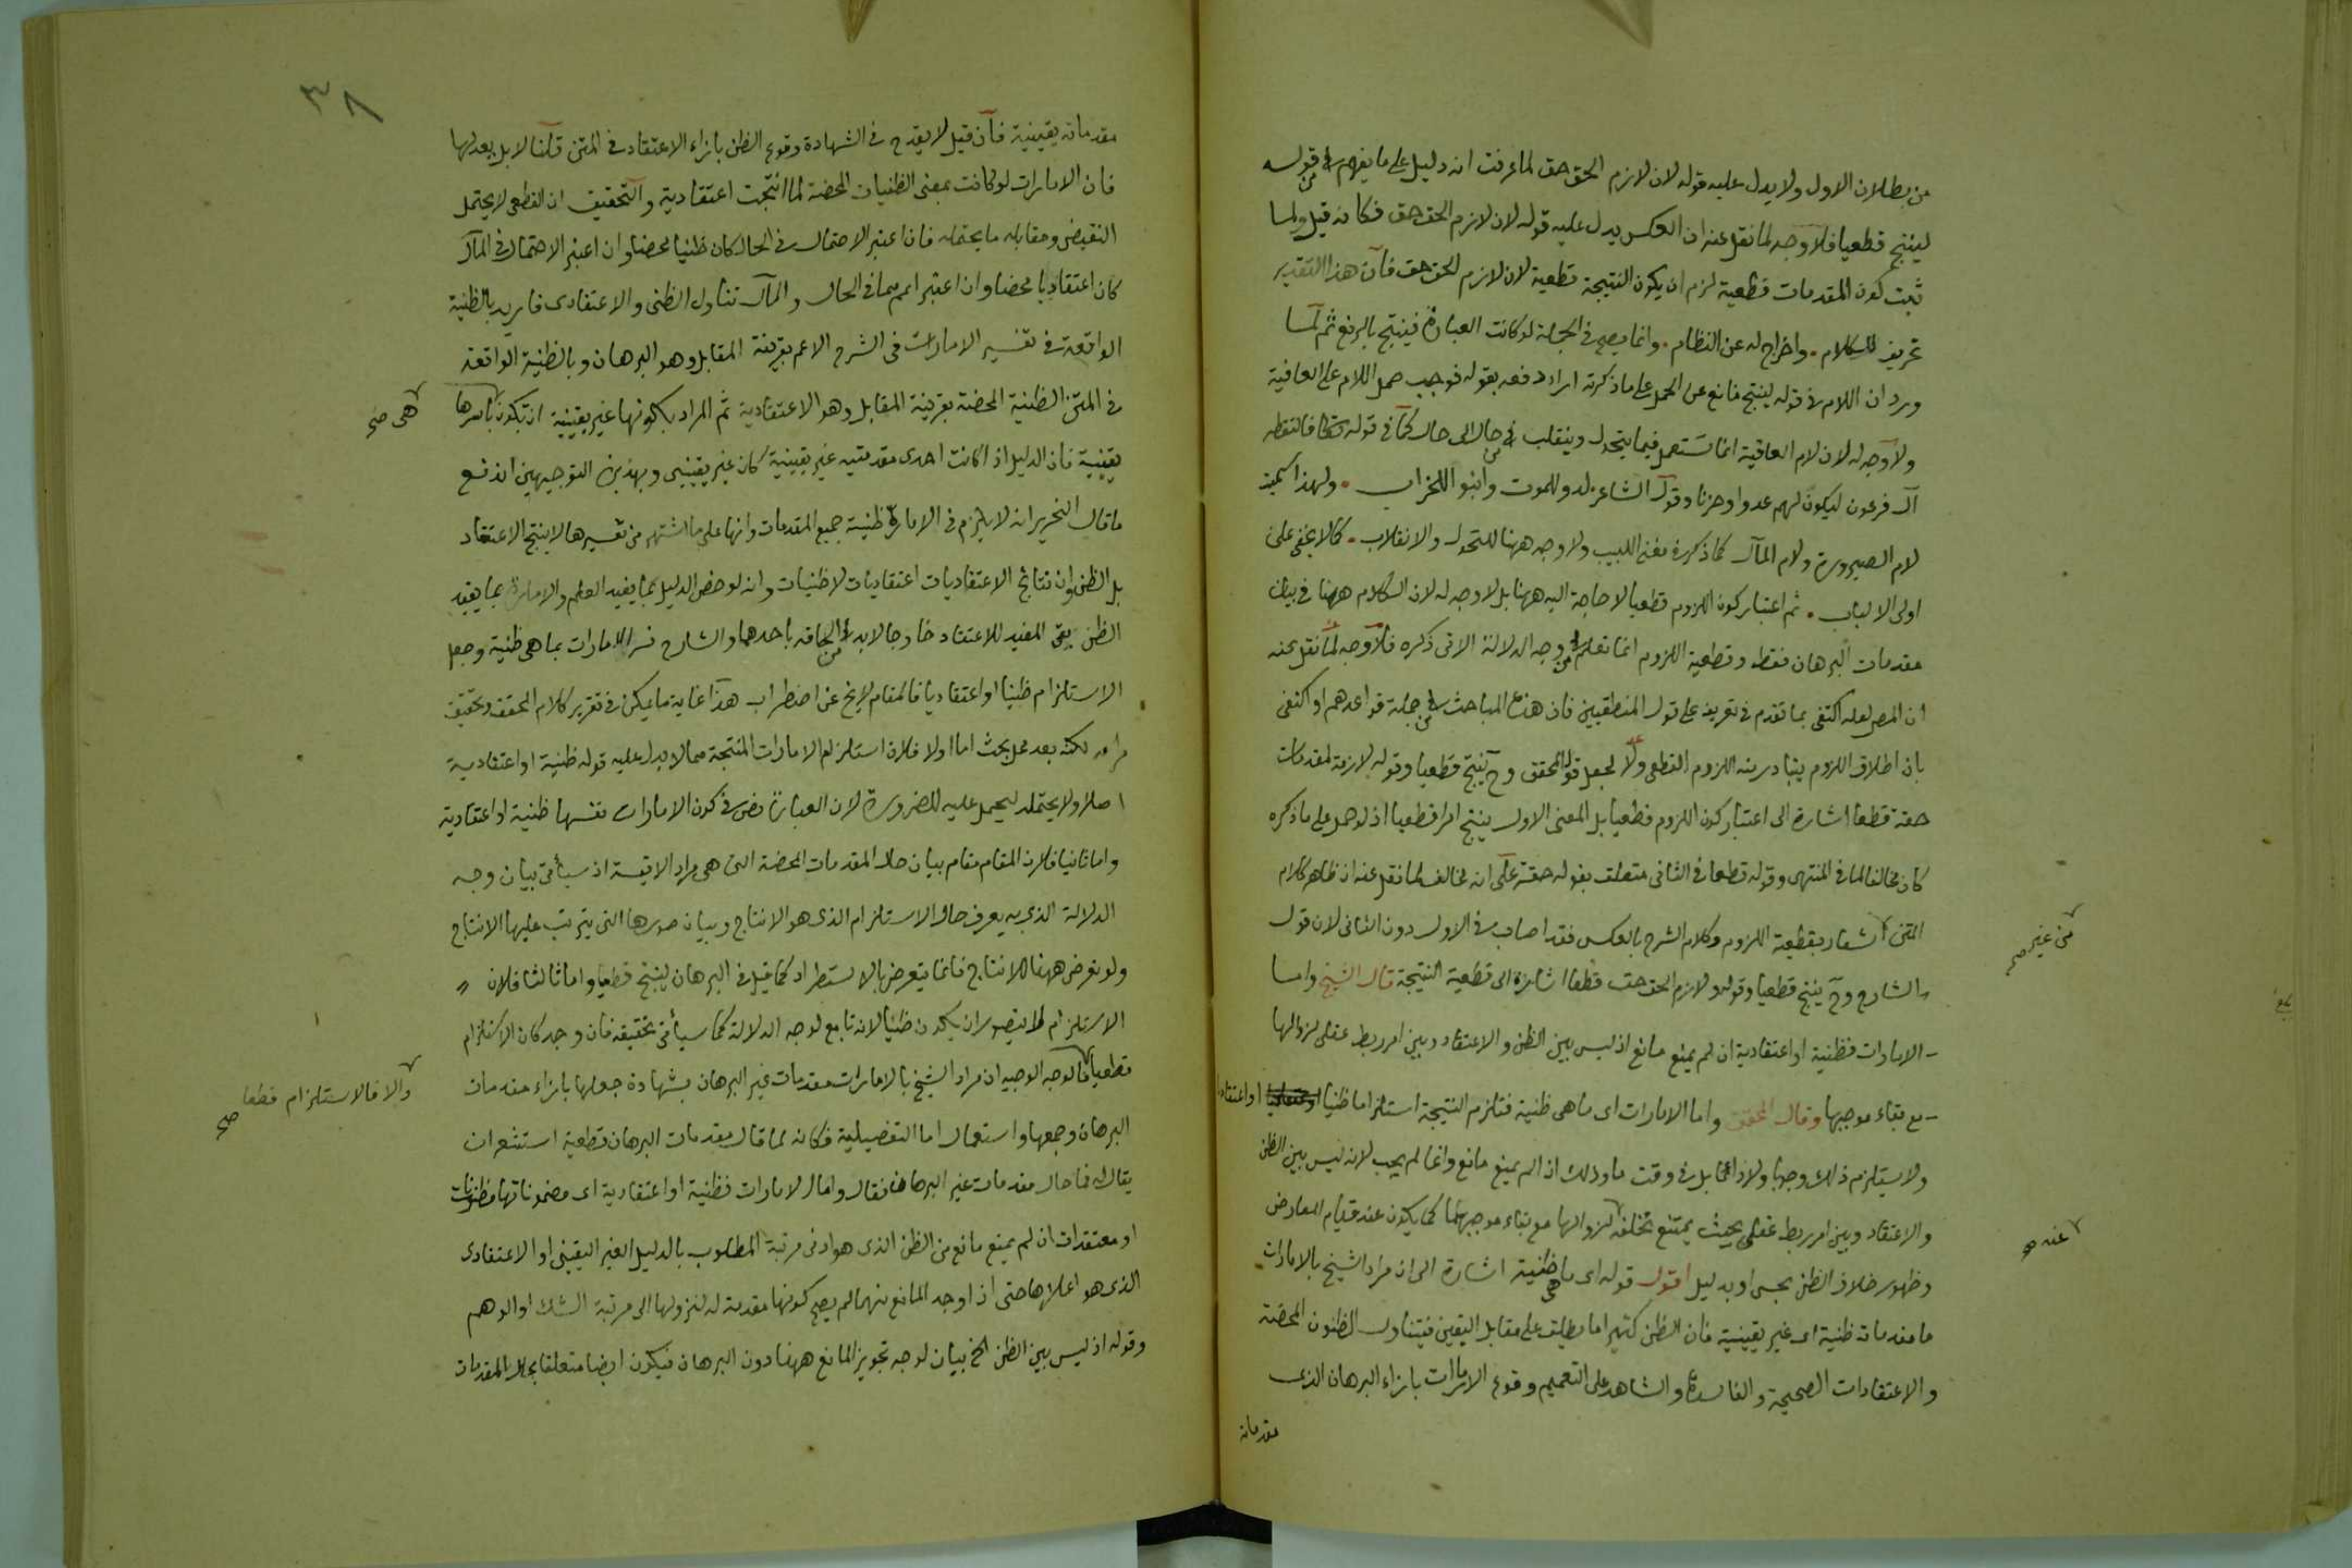 من بطلان الاول ولا يدل عليه قوله لان لازم الحق حق لما عرفت انه دليل على ما يفهم من قوله
لينتج قطعيا فلا وجه لما نقل عنه ان العكس يدل عليه قوله لان لازم الحق حق فكانه قيل ولما
ثبت كون المقدمات قطعية لزم ان يكون النتيجة قطعية لان لازم الحق حق فان هذا التقدير
تحريف للكلام . واخراج له عن النظام . وانما يصح في الجملة لو كانت العبارة فينتج بالرفع ثم لما
ورد ان اللام في قوله لينتج مانع عن الحمل على ما ذكرته اراد دفعه بقوله فوجب حمل اللام على العاقبة
ولا وجه له لان لام العاقبة انما تستعمل فيما يتحول وينقلب من حال الى حال كما في قوله تعالى فالتقطه
آل فرعون ليكون لهم عدوا وحزنا وقول الشاعر لدو للموت وابنو للخراب . ولهذا سميت
لام الصيرورة ولام المآل كما ذكره مغني اللبيب ولا وجه ههنا للتحول والانقلاب . كما لا يخفى على
اولى الالباب . ثم اعتبار كون اللزوم قطعيا لا حاجة اليه ههنا بل لا وجه له لان الكلام ههنا في بيان
مقدمات البرهان فقط وقطعية اللزوم انما تعلم من وجه الدلالة الاتى ذكره فلا وجه لما نقل عنه
ان المص لعله اكتفى بما تقدم في تعريفه على قول المنطقيين فان هذه المباحث من جملة قواعدهم او اكتفى
بان اطلاق اللزوم يتبادر منه اللزوم القطعى ولا لجعل قول المحقق وح ينتج قطعيا وقوله لازمة لمقدمات
حقة قطعا اشارة الى اعتبار كون اللزوم قطعيا بل المعنى الاول ينتج امرا قطعيا اذ لو حمل على ما ذكره
كان مخالفا لما في المنتهى وقوله قطعا في الثانى متعلق بقوله حقة على انه مخالف لما نقل عنه ان ظاهر كلام
المتن اشعار بقطعية اللزوم وكلام الشرح بالعكس فقد اصاب في الاول دون الثانى لان قول
من غير صح
الشارح وح ينتج قطعيا وقوله ولازم الحق حق قطعا اشارة الى قطعية النتيجة قال الشيخ واما
الامارات فظنية او اعتقادية ان لم يمنع مانع اذ ليس بين الظن والاعتقاد وبين امر ربط عقلى لزوالها
مع بقاء موجبها وقال المحقق واما الامارات اى ما هى ظنية فتلزم النتيجة استلزاما ظنيا او اعتقاديا
ولا يستلزم ذلك وجوبا ولا دائما بل في وقت ما وذلك اذا لم يمنع مانع وانما لم يجب لانه ليس بين الظن
والاعتقاد وبين امر ربط عقلى بحيث يمتنع تخلفه لزوالها مع بقاء موجبهما كما يكون عند قيام المعارض
عنه صح
وظهور خلاف الظن بحس او بدليل اقول قوله اى ما هى ظنية اشارة الى ان مراد الشيخ بالامارات
ما مقدماته ظنية اى غير يقينية فان الظن كثيرا ما يطلق على مقابل اليقين فيتناول الظنون المحضة
والاعتقادات الصحيحة والفاسدة والشاهد على التعميم وقوع الامارات بازاء البرهان الذى
مقدماته
٣٨
مقدماته يقينية فان قيل لا يقدح في الشهادة وقوع الظن بازاء الاعتقاد في المتن قلنا لا بل يعدلها
فان الامارات لو كانت بمعنى الظنيات المحضة لما انتجت اعتقادية والتحقيق ان القطعى لا يحتمل
النقيض ومقابله ما يحتمله فاذا اعتبر الاحتمال في الحال كان ظنيا محضا وان اعتبر الاحتمال في المآل
كان اعتقاديا محضا وان اعتبر اعم مما في الحال والمآل تناول الظنى والاعتقادى فاريد بالظنية
الواقعة في تفسير الامارات في الشرح الاعم بقرينة المقابل وهو البرهان وبالظنية الواقعة
في المتن الظنية المحضة بقرينة المقابل وهو الاعتقادية ثم المراد بكونها غير يقينية ان تكون باسرها
هى صح
يقينية فان الدليل اذا كانت احدى مقدمتيه غير يقينية كان غير يقينى وبهذين التوجيهين اندفع
ما قال النحرير انه لا يلزم في الامارة ظنية جميع المقدمات وانها على ما اشتهر من تفسيرها لا ينتج الاعتقاد
بل الظن وان نتائج الاعتقاديات اعتقاديات لا ظنيات وانه لو خص الدليل بما يفيد العلم والامارة بما يفيد
الظن بقى المفيد للاعتقاد خارجا لابد من الحاقه باحدهما والشارح فسر الامارات بما هى ظنية وجعل
الاستلزام ظنيا او اعتقاديا فالمقام لا يخ عن اضطراب هذا غاية ما يمكن في تقرير كلام المحقق وتحقيق
مرامه لكنه بعد محل بحث اما اولا فلان استلزام الامارات المنتجة مما لا يدل عليه قوله ظنية او اعتقادية
اصلا ولا يحتمله ليحمل عليه للضرورة لان العبارة نص في كون الامارات نفسها ظنية او اعتقادية
واما ثانيا فلان المقام مقام بيان حال المقدمات المحضة التى هى مواد الاقيسة اذ سيأتى بيان وجه
الدلالة الذى به يعرف حال الاستلزام الذى هو الانتاج وبيان صورها التى يترتب عليها الانتاج
ولو تعرض ههنا للانتاج فانما يتعرض بالاستطراد كما قيل في البرهان لينتج قطعيا واما ثالثا فلان
الاستلزام لا يتصور ان يكون ظنيا لانه تابع لوجه الدلالة كما سيأتى تحقيقه فان وجد كان الاستلزام
قطعيا فالوجه الوجيه ان مراد الشيخ بالامارات مقدمات غير البرهان بشهادة جعلها بازاء مقدمات
والا فالاستلزام قطعا صح
البرهان وجمعها واستعمال اما التفصيلية فكانه لما قال مقدمات البرهان قطعية استشعر ان
يقال له فما حال مقدمات غير البرهان فقال واما الامارات فظنية او اعتقادية اى مضموناتها مظنونات
او معتقدات ان لم يمنع مانع من الظن الذى هو ادنى مرتبة المطلوب بالدليل الغير اليقينى او الاعتقادى
الذى هو اعلاها حتى اذا وجد المانع منهما لم يصح كونها مقدمة له لنزولها الى مرتبة الشك او الوهم
وقوله اذ ليس بين الظن الخ بيان لوجه تجويز المانع ههنا دون البرهان فيكون ايضا متعلقا بحال المقدمات